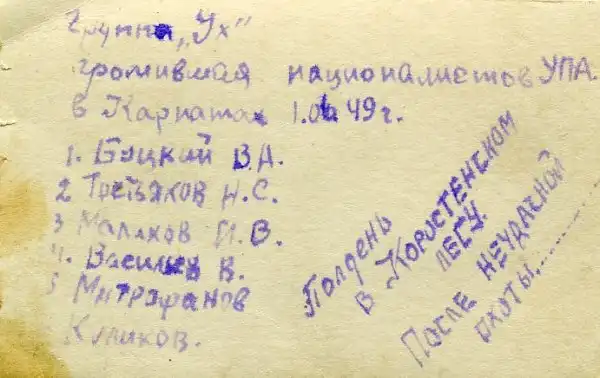 Группа „Ух"
громившая националистов УПА.
в Карпатах 1.04 49 г.
1. Буцкий В.А.
2 Третьяков Н.С.
3 Малахов И.В.
4. Васильев В.
5 Митрофанов
Куликов.
Полдень
в Коростенском
лесу.
После неудачной
охоты.........